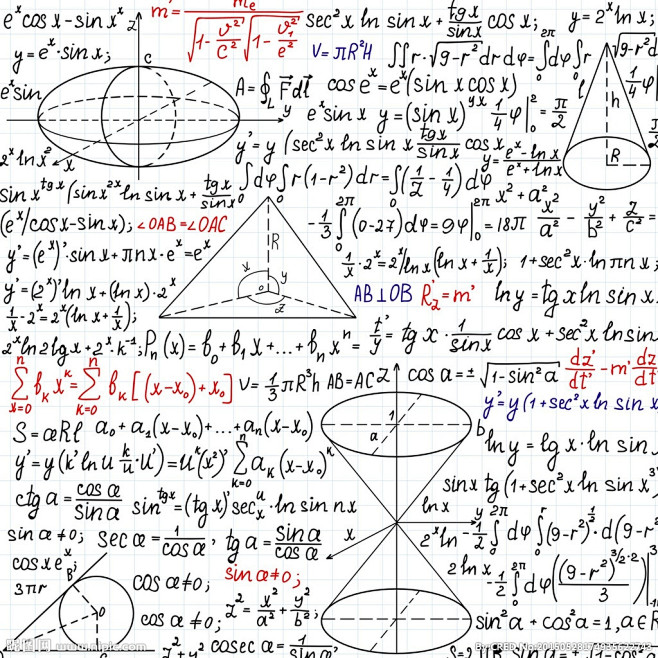 eˣcosx-sinxˣ z
m'= mₑ / √(1-υ²/c²) √(1-υ₁²/e²)
sec²x ln sinx + tgx/sinx cosx;
y=2ˣlnx;
y=eˣ·sinx;
V=πR²H
∫∫r·√(9-r²)drdφ=∫₀^2π dφ∫r √(9-r²d
c
eˣsin
A=∮_L F⃗dl⃗
coseˣ=eˣ(sinxcosx)
1/4φ|
h
y
eˣsinx y=(sinx)^yx 1/4φ|₀²=π/2
2ˣlnx²
x
y'=y(sec²x ln sinx tgx/sinx cosx
y= eˣ-lnx / eˣ+lnx
R
sinx^tgx(sinx^2x ln sinx+ tgx/sinx
∫dφ∫r(1-r²)dr=∫(1/2-1/4)dφ
x²+a²
(eˣ/cosx-sinx);
∠OAB=∠OAC
-1/3∫₀^2π(0-27)dφ=9φ|₀^2π=18π
x²/a² - y²/b² + z/c² =
y'=(eˣ)'·sinx+πnx·eˣ=eˣ
R
1/x·2ˣ=2ˣ/lnx(lnx+1/x);
1+sec²x·lnπnx;
x y
o
z
y'=(2ˣ)'lnx+(lnx)·2ˣ
AB⊥OB
R'₂=m'
lny=tgxlnsinx.
1/x-2ˣ=2ˣ(lnx+1/x);
2ˣln2lgx+2ˣ·k⁻¹;
Pₙ(x)=b₀+b₁x+...+bₙxⁿ
t'/y = tgx·1/sinx cosx+sec²x lnsin
∑ₓ₌₀ⁿ bₖxᵏ=∑ₖ₌₀ⁿ bₖ[(x-x₀)+x₀]
V=1/3πR³h
AB=AC
z
cosa=±√(1-sin²a)
dz'/dt' - m' dz/dt
y'=y(1+sec²x ln sinx
S=æRl
a₀+a₁(x-x₀)+...+aₙ(x-x₀)
1
a
b
lny=lgx·lnsin
y'=y(k'lnu k/u·u')=uᵏ(x²)'
∑ₖ₌₀ⁿ aₖ(x-x₀)ᵏ
ctga= cosa/sina
sin^tgx=(tgx)'sec²ₓ·lnsinnx
sinxtg(1+sec²x lnsinx
sinα≠0;
secæ=1/cosa,
tga= sina/cosa
lnx
x
y
2ˣln
-1/2∫₀^2π dφ∫₀^r(9-r²)^1/2·d(9-r
cosxeₓ;
3πr
B
o
cosα≠0;
sinα≠0;
2lnx
-1/2∫₀^2π dφ((9-r²)^3/2·2 / 3)|
cosα≠0;
z²= x²/a² + y²/b²;
sin²a+cos²a=1,a∈R
z²+y²
coseca=1/sina'
www.nipic.com